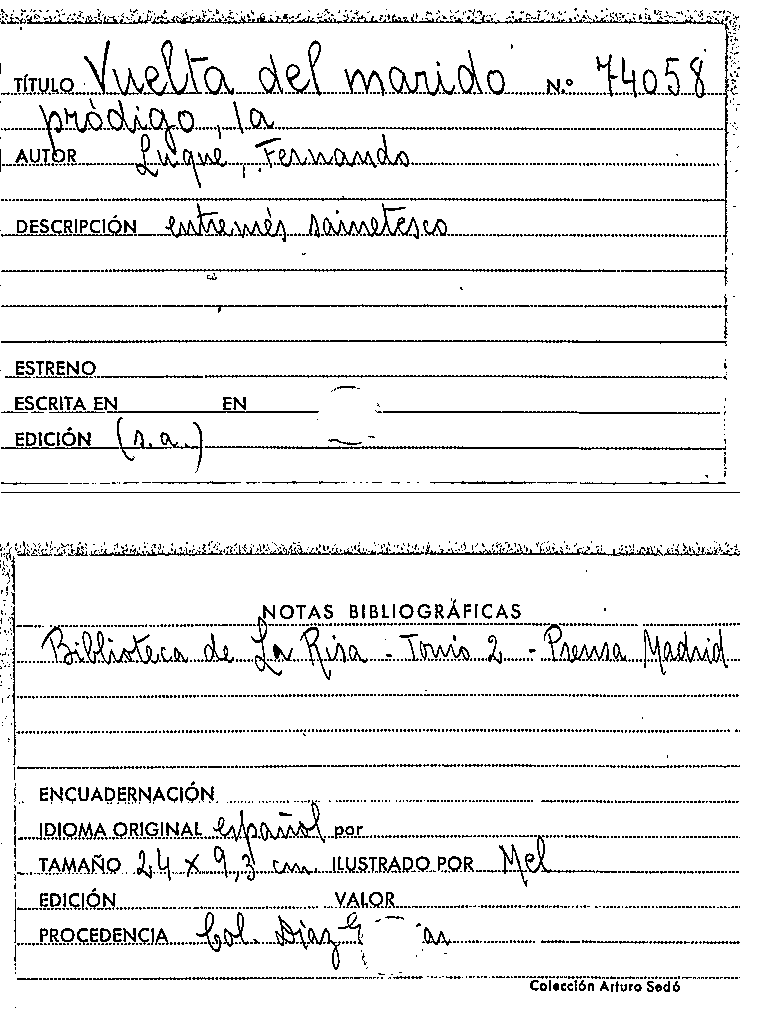 TÍTULO Vuelta del marido N.º 74058
pródigo, la
AUTOR Luque, Fernando
DESCRIPCIÓN entremés sainetesco
ESTRENO
ESCRITA EN EN
EDICIÓN (s.a.)
NOTAS BIBLIOGRÁFICAS
Biblioteca de La Risa - Tomo 2 - Prensa Madrid
ENCUADERNACIÓN
IDIOMA ORIGINAL español por
TAMAÑO 24 x 9,3 cm. ILUSTRADO POR Mel
EDICIÓN VALOR
PROCEDENCIA Col. Díaz
Colección Arturo Sedó